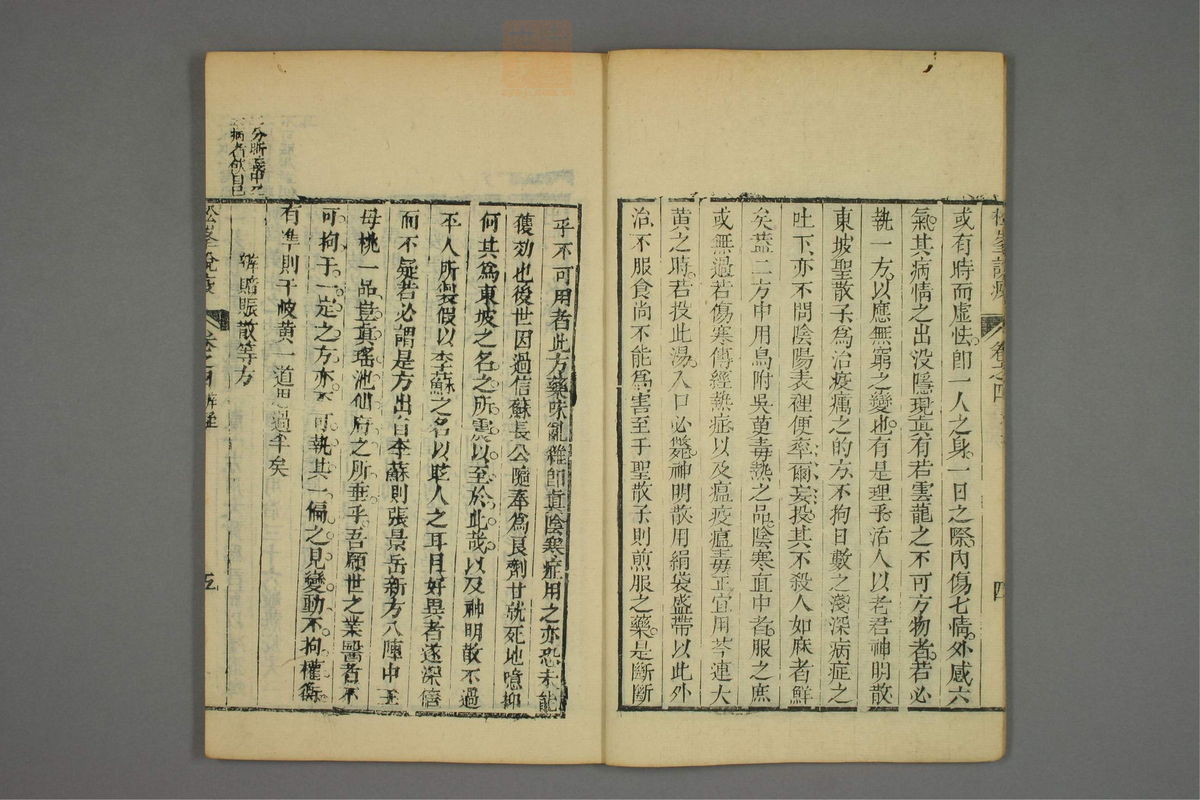 或有時而虛怯卽一人之身一日之際內傷七情外感六
氣其病情之出没隱現眞有若雲龍之不可方物者若必
執一方以應無窮之變也有是理乎活人以老君神明散
東坡聖散子爲治疫癘之的方不拘日數之淺深病症之
吐下亦不問陰陽表裡便率爾妄投其不殺人如麻者鮮
矣葢二方中用烏附吳萸毒熱之品陰寒直中者服之庶
或無過若傷寒傳經熱症以及瘟疫瘧毒正宜用芩連大
黃之時若投此湯入口必斃神明散用絹袋盛帶以此外
治不服食尚不能爲害至于聖散子則煎服之藥是斷斷
松峯說疫
卷之四
四
乎不可用者此方藥味亂雜卽眞陰寒症用之亦恐未能
獲効也後世因過信蘇長公隨奉爲良劑甘就死地噫抑
何其爲東坡之名之所震以至於此哉以及神明散不過
平人所製假以李蘇之名以聳人之耳目好異者遂深信
而不疑若必謂是方出自李蘇則張景岳新方八陣中王
母桃一品豈眞瑤池仙府之所垂乎吾願世之業醫者不
可拘于一定之方亦不可執其一偏之見變動不拘權衡
有準則于岐黃一道思過半矣
辟瘟賑散等方
松峯說疫
卷之四
五